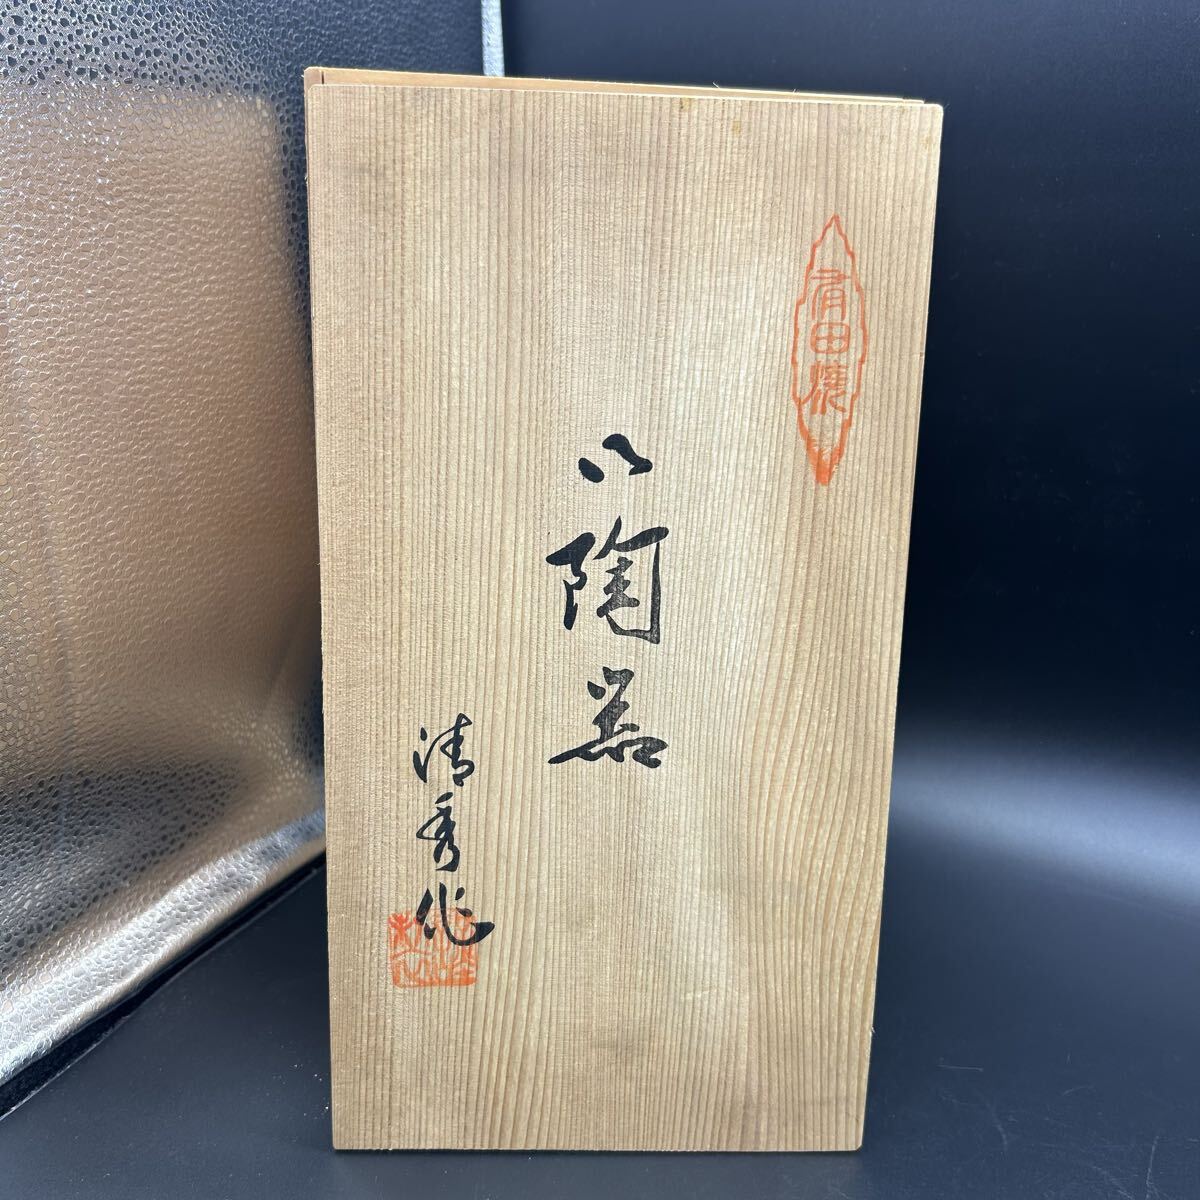 有田焼
陶器
清秀作